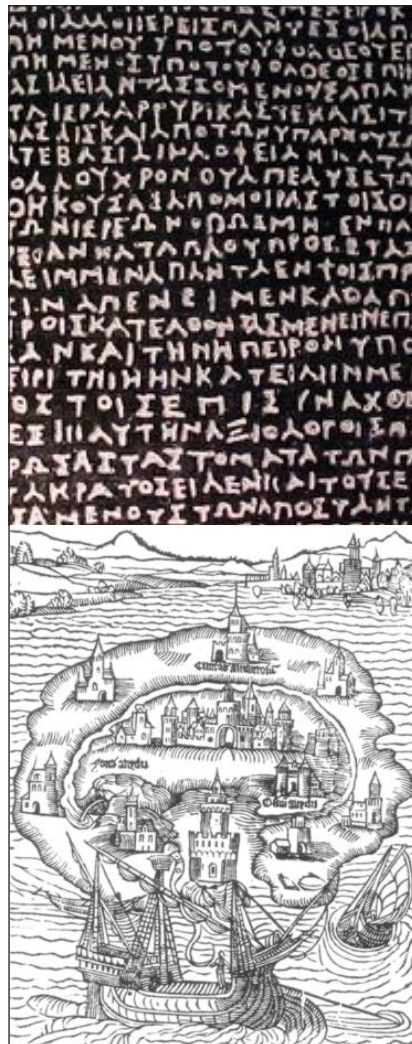 ΟΙΑΛΛΟΙΙΕΡΕΙΣΠΑΝΤΕΣΟΙΑΠ
ΠΗΜΕΝΟΥΥΠΟΤΟΥΦΘΑΘΕΟΥΕΠΙ
ΠΗΜΕΝΟΣΥΠΟΤΟΥΦΘΑΘΕΟΣΕΠΙ
ΑΣΙΛΕΙΑΝΤΑΣΣΟΜΕΝΟΥΣΑΠΑΝ
ΤΑΙΕΡΑΑΡΓΥΡΙΚΑΣΤΕΚΑΙΣΙΤ
ΑΣΔΙΣΚΑΙΑΠΟΤΩΝΥΠΑΡΧΟΥΣΩ
ΤΕΒΑΣΙΛΙΚΑΟΦΕΙΛΗΜΑΤΑ
ΟΛΛΟΥΧΡΟΝΟΥΑΠΕΛΥΣΕΤΩ
ΘΗΚΟΥΣΑΣΑΠΟΜΟΙΡΑΣΤΟΙΣΘΕ
ΩΝΙΕΡΕΩΝΟΠΩΣΜΗΘΕΝΠΛ
ΕΙΑΝΚΑΤΑΠΛΟΥΠΡΟΣΕΤΑΞ
ΛΕΙΜΜΕΝΑΠΑΝΤΑΕΝΤΟΙΣΠΡ
ΕΙΝΑΠΕΝΕΙΜΕΝΚΑΘΑΠ
ΙΡΟΙΣΚΑΤΕΛΘΟΝΤΑΣΜΕΝΕΙΝΕΠ
ΑΝΚΑΙΤΗΝΗΠΕΙΡΟΝΥΠΟ
ΕΙΡΙΤΗΙΗΗΝΚΑΤΕΙΛΗΜΜΕ
ΟΣΤΟΙΣΕΠΙΣΥΝΑΧΘ
ΕΣΕΠΑΥΤΗΝΑΞΙΟΛΟΓΟΙΣΠ
ΡΩΣΑΣΤΑΣΤΟΜΑΤΑΤΩΝΠ
ΤΑΚΡΑΤΟΣΕΙΛΕΝΚΑΙΤΟΥΣΕ
ΣΑΜΕΝΟΥΣΤΩΝΑΠΟΣΤΑΝΤ
Ciuitas Amaurotū
Fons Anydri
Ostiū anydri